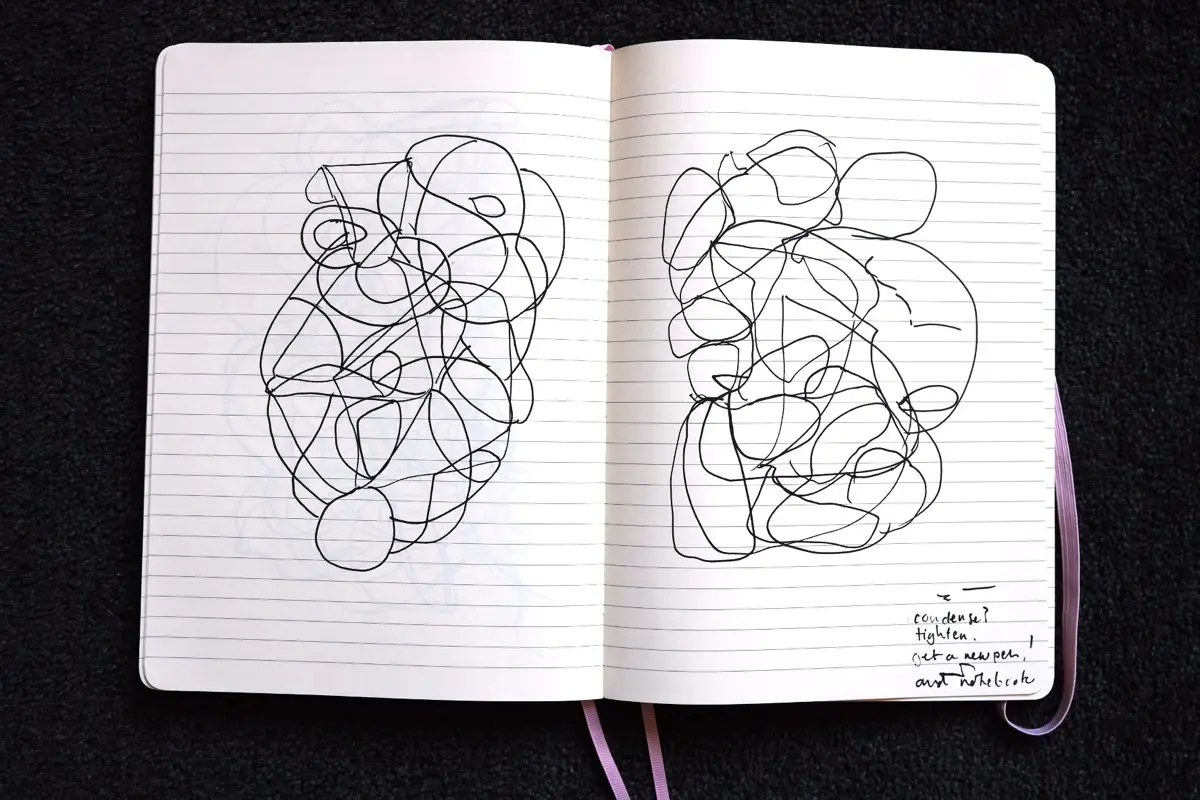 condense?
tighten.
get a new pen!
and notebook